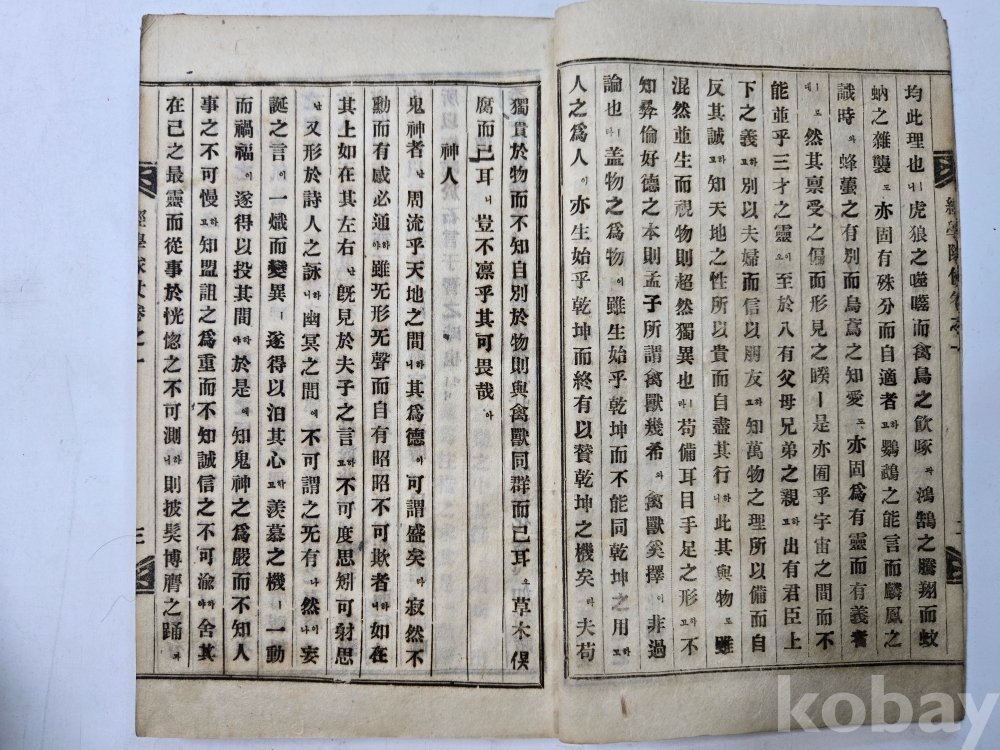 均此理也ㅣ니虎狼之噬囓而禽鳥之飮啄와鴻鵠之騰翔而蚊
蚋之雜襲도亦固有殊分而自適者고하鸚鵡之能言而麟鳳之
識時와蜂螢之有別而烏蔿之知愛亦固爲有靈而有義者
ㅣ로대然其禀受之偏而形見之暌ㅣ是亦囿乎宇宙之間而不
能並乎三才之靈이오至於八有父母兄弟之親고하出有君臣上
下之義고하別以夫婦而信以朋友고하知萬物之理所以備而自
反其誠고하知天地之性所以貴而自盡其行니하此其與物도雖
混然並生而視物則超然獨異也라苟備耳目手足之形고하不
知彛倫好德之本則孟子所謂禽獸幾希와禽獸奚擇이非過
論也ㅣ라盖物之爲物이雖生始乎乾坤而不能同乾坤之用고하
人之爲人이亦生始乎乾坤而終有以贊乾坤之機矣라夫苟
獨貴於物而不知自別於物則與禽獸同群而已耳오草木俱
腐而已耳니豈不凛乎其可畏哉아
神人
鬼神者난周流乎天地之間니하其爲德이可謂盛矣라寂然不
動而有感必通야하雖无形无聲而自有昭昭不可欺者니하如在
其上如在其左右난旣見於夫子之言고하不可度思矧可射思
난又形於詩人之詠니하幽冥之間에不可謂之无有나然이나妄
誕之言이一熾而變異ㅣ遂得以泊其心고하羨慕之機ㅣ一動
而禍福이遂得以投其間야하於是에知鬼神之爲嚴而不知人
事之不可慢고하知盟詛之爲重而不知誠信之不可渝야하舍其
在己之最靈而從事於恍惚之不可測니하則披髮博膺之踊과
經學隊仗卷之一
三
kobay